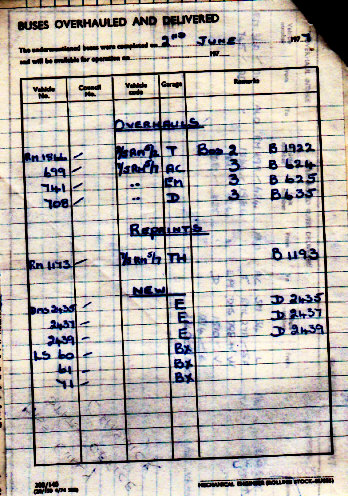 BUSES OVERHAULED AND DELIVERED
The undermentioned buses were completed on 2ND JUNE 197
and will be available for operation on 197
Vehicle No. Council No. Vehicle code Garage Remarks
OVERHAULS
T BOD 2 B 1922
699 AC 3 B 624
741 " EM 3 B 625
708 " D 3 B 635
REPAINTS
RM 1193 TH B 1193
NEW
DMS 2435 E D 2435
2437 E D 2437
2439 E D 2439
LS 60 BX
61 BX
71 BX
MECHANICAL ENGINEER (ROLLING STOCK-BUSES)